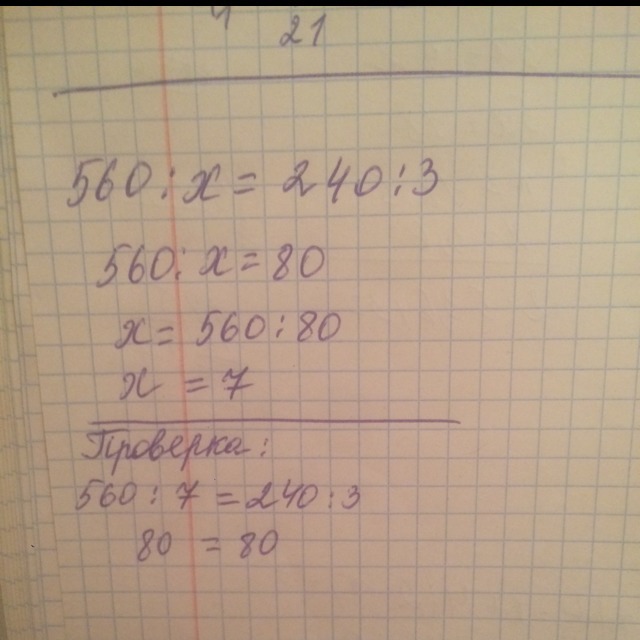 21
560 : x = 240 : 3
560 : x = 80
x = 560 : 80
x = 7
Проверка:
560 : 7 = 240 : 3
80 = 80